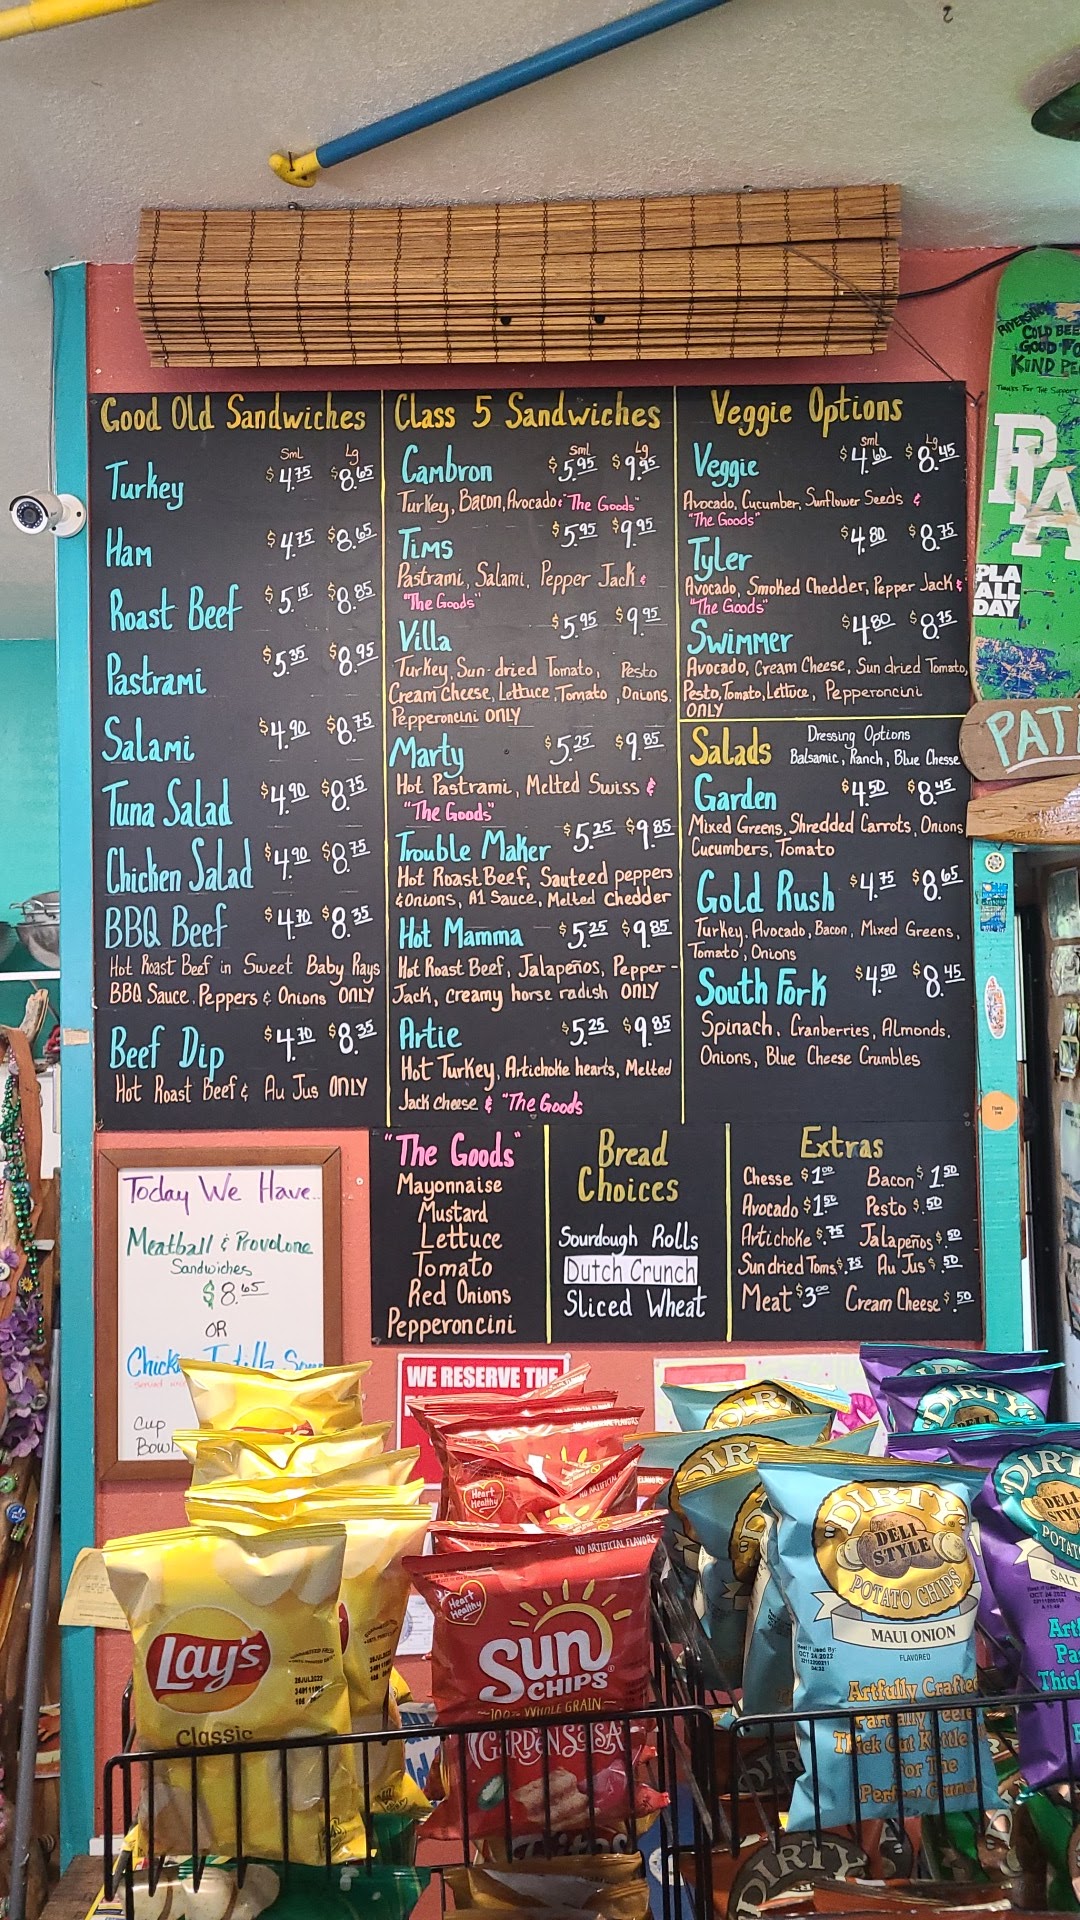 Good Old Sandwiches
Sml Lg
Turkey $4.75 $8.65
Ham $4.75 $8.65
Roast Beef $5.15 $8.85
Pastrami $5.35 $8.95
Salami $4.90 $8.75
Tuna Salad $4.90 $8.75
Chicken Salad $4.90 $8.75
BBQ Beef $4.70 $8.35
Hot Roast Beef in Sweet Baby Rays
BBQ Sauce, Peppers & Onions ONLY
Beef Dip $4.70 $8.35
Hot Roast Beef & Au Jus ONLY
Class 5 Sandwiches
Sml Lg
Cambron $5.95 $9.95
Turkey, Bacon, Avocado & "The Goods"
Tims $5.95 $9.95
Pastrami, Salami, Pepper Jack &
"The Goods"
Villa $5.95 $9.95
Turkey, Sun-dried Tomato, Pesto
Cream Cheese, Lettuce, Tomato, Onions,
Pepperoncini ONLY
Marty $5.25 $9.85
Hot Pastrami, Melted Swiss &
"The Goods"
Trouble Maker $5.25 $9.85
Hot Roast Beef, Sauteed peppers
& Onions, A1 Sauce, Melted Chedder
Hot Mamma $5.25 $9.85
Hot Roast Beef, Jalapeños, Pepper-
Jack, creamy horse radish ONLY
Artie $5.25 $9.85
Hot Turkey, Artichoke hearts, Melted
Jack cheese & "The Goods
Veggie Options
Sml Lg
Veggie $4.60 $8.45
Avocado, Cucumber, Sunflower Seeds &
"The Goods"
Tyler $4.80 $8.75
Avocado, Smoked Chedder, Pepper Jack &
"The Goods"
Swimmer $4.80 $8.75
Avocado, Cream Cheese, Sun dried Tomato,
Pesto, Tomato, Lettuce, Pepperoncini
ONLY
Salads Dressing Options
Balsamic, Ranch, Blue Chesse
Garden $4.50 $8.45
Mixed Greens, Shredded Carrots, Onions
Cucumbers, Tomato
Gold Rush $4.75 $8.65
Turkey, Avocado, Bacon, Mixed Greens,
Tomato, Onions
South Fork $4.50 $8.45
Spinach, Cranberries, Almonds,
Onions, Blue Cheese Crumbles
"The Goods"
Mayonnaise
Mustard
Lettuce
Tomato
Red Onions
Pepperoncini
Bread
Choices
Sourdough Rolls
Dutch Crunch
Sliced Wheat
Extras
Chesse $1.00 Bacon $1.50
Avocado $1.50 Pesto $.50
Artichoke $.75 Jalapeños $.50
Sun dried Toms $.75 Au Jus $.50
Meat $3.00 Cream Cheese $.50
Today We Have..
Meatball & Provolone
Sandwiches
$8.65
OR
Cup
Bowl
WE RESERVE THE
COLD BEE
GOOD FO
KIND PE
Thanks For The Support
PLA
ALL
DAY
PAT
Lay's
Classic
Heart
Healthy
NO ARTIFICIAL FLAVORS
Sun
CHIPS
100% WHOLE GRAIN
GARDEN SALSA
DIRTY
DELI
STYLE
POTATO CHIPS
MAUI ONION
FLAVORED
OCT 24 2022
Artfully Crafted
Partially Peeled
Thick Cut Kettle
For The
Perfect Crunch
DIRTY
DELI
STYL
POTAT
SALT
Art
Pa
Thic
DIRTY